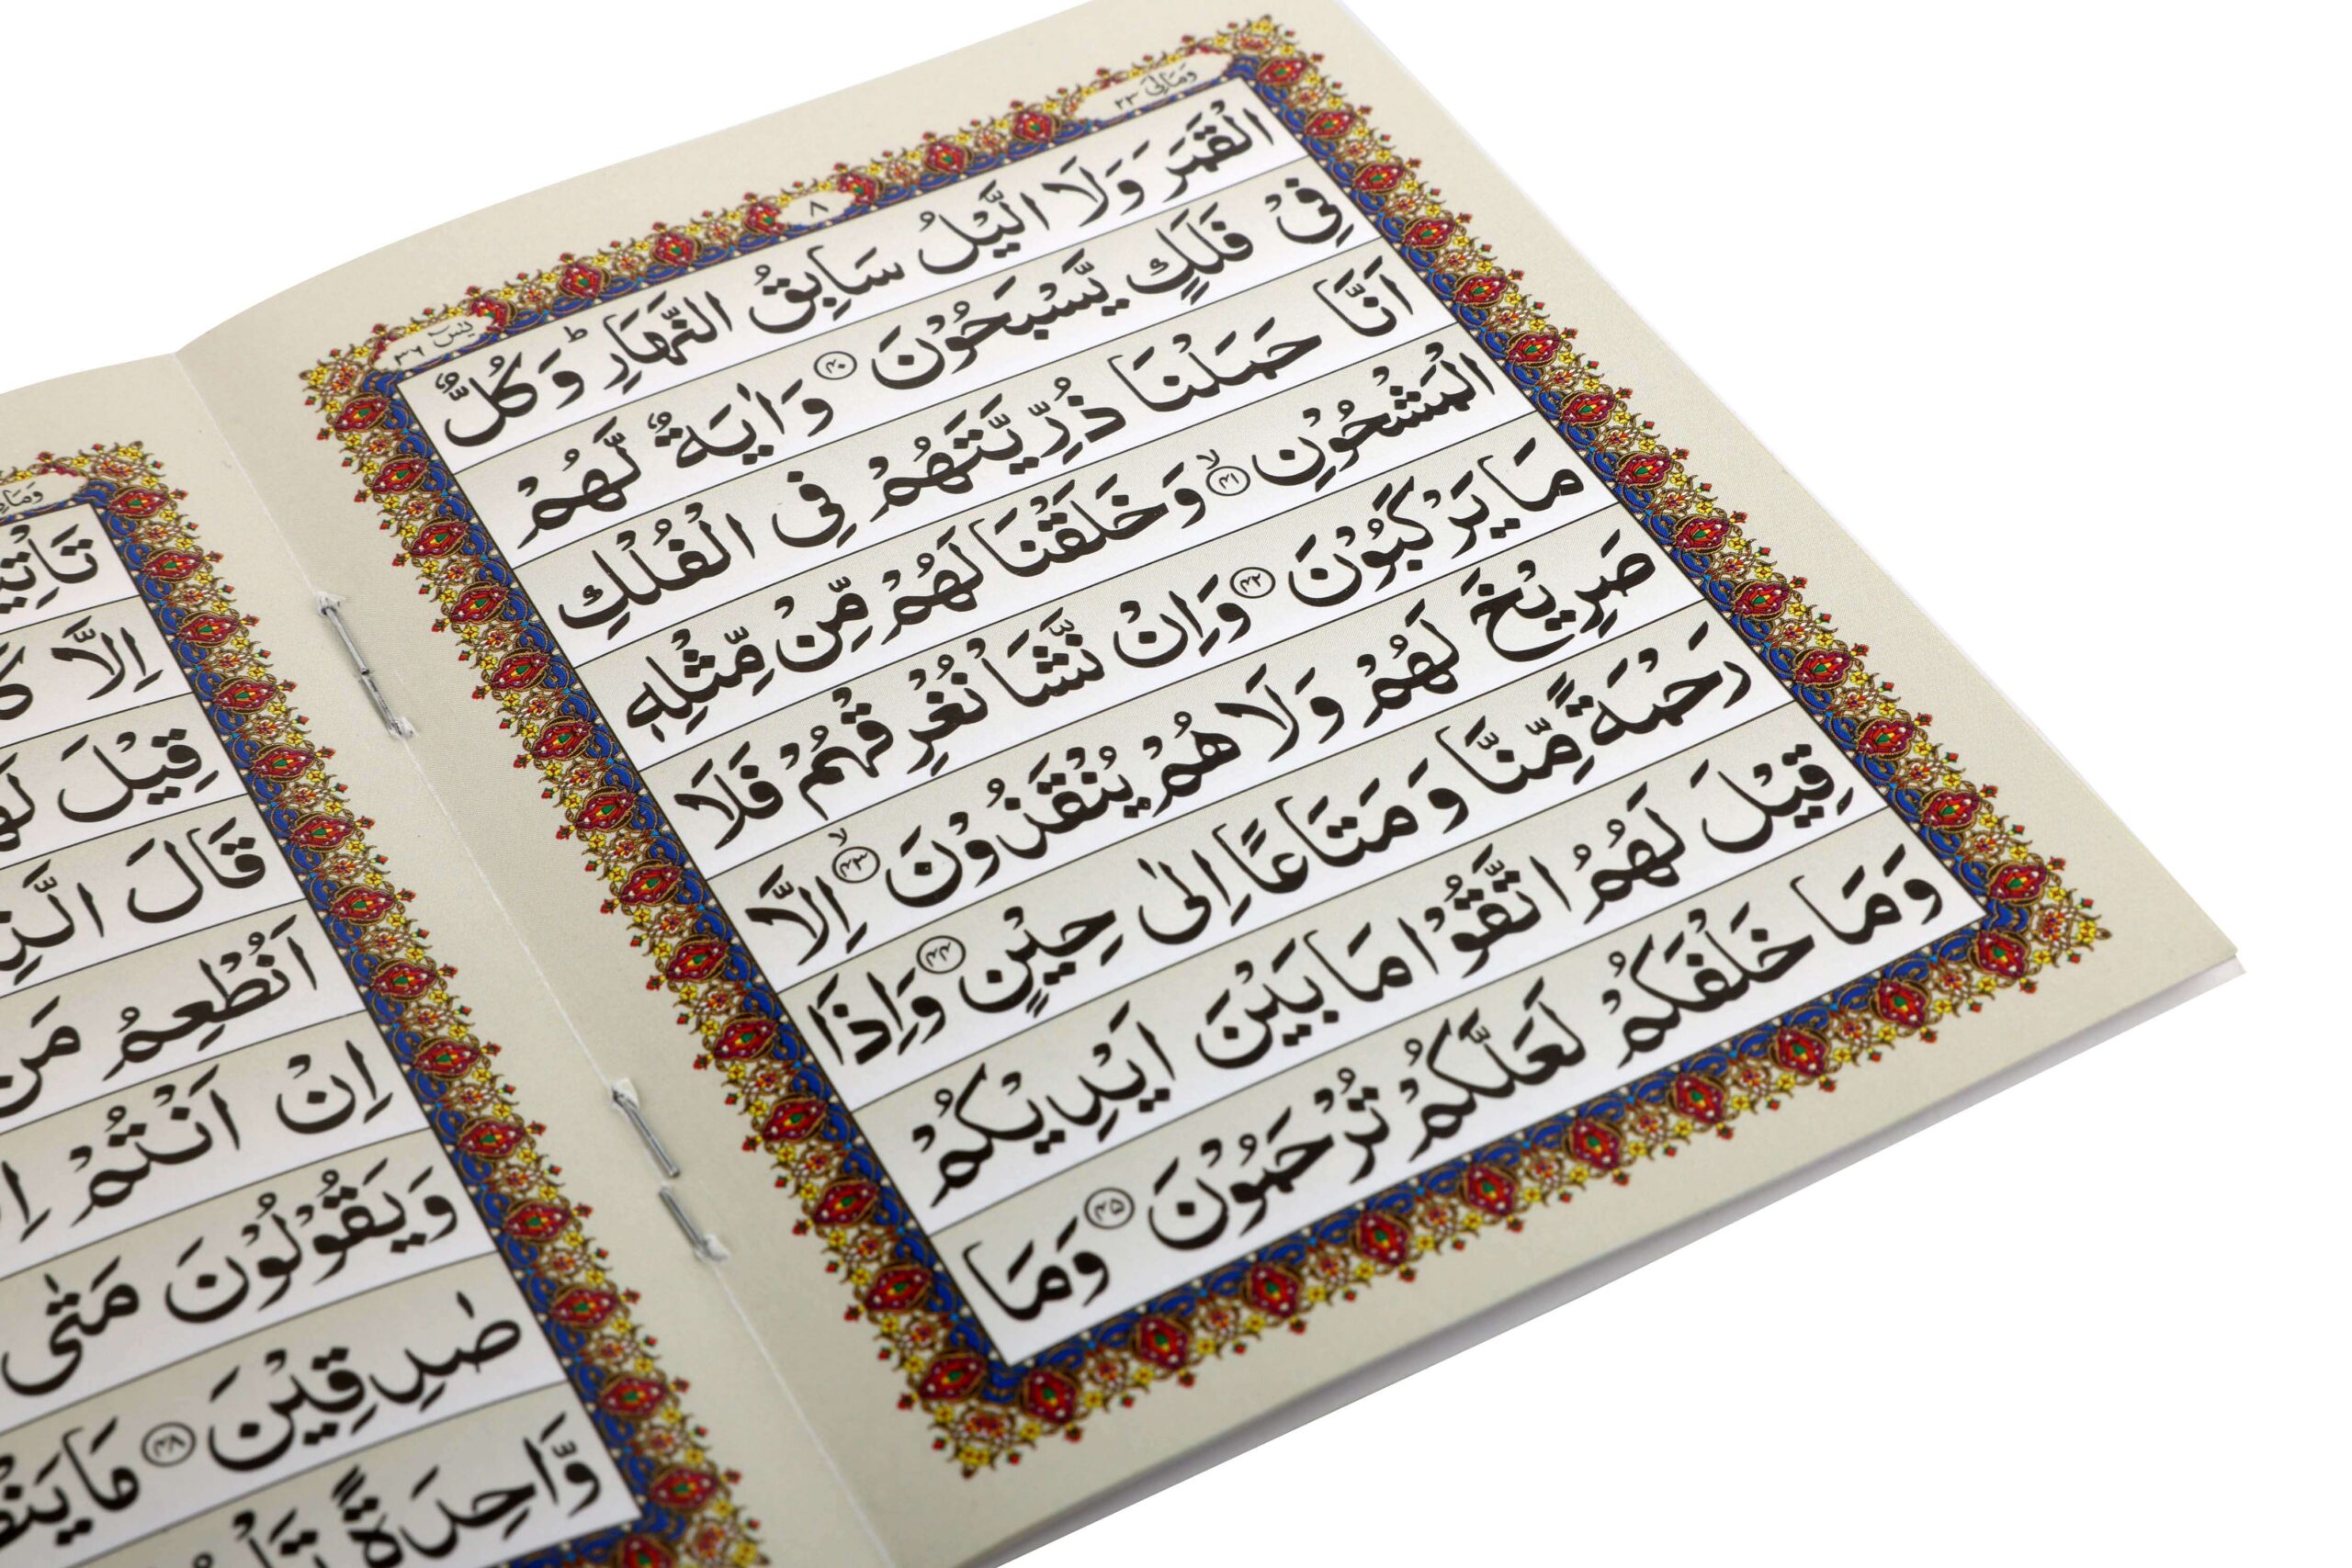 وَمَالِىَ ٢٣
٨
يٰسٓ ٣٦
الْقَمَرَ وَلَا الَّيْلُ سَابِقُ النَّهَارِ ؕ وَكُلٌّ
فِىْ فَلَكٍ يَّسْبَحُوْنَ ﴿۴۰﴾ وَاٰيَةٌ لَّهُمْ
اَنَّا حَمَلْنَا ذُرِّيَّتَهُمْ فِى الْفُلْكِ
الْمَشْحُوْنِ ﴿۴۱﴾ ۙ وَخَلَقْنَا لَهُمْ مِّنْ مِّثْلِهٖ
مَا يَرْكَبُوْنَ ﴿۴۲﴾ وَاِنْ نَّشَاْ نُغْرِقْهُمْ فَلَا
صَرِيْخَ لَهُمْ وَلَا هُمْ يُنْقَذُوْنَ ﴿۴۳﴾ ۙ اِلَّا
رَحْمَةً مِّنَّا وَمَتَاعًا اِلٰى حِيْنٍ ﴿۴۴﴾ وَاِذَا
قِيْلَ لَهُمُ اتَّقُوْا مَا بَيْنَ اَيْدِيْكُمْ
وَمَا خَلْفَكُمْ لَعَلَّكُمْ تُرْحَمُوْنَ ﴿۴۵﴾ وَمَا
اِلَّا
قِيْلَ
قَالَ
اَنُطْعِمُ مَنْ
اِنْ اَنْتُمْ
وَيَقُوْلُوْنَ مَتٰى
صٰدِقِيْنَ ﴿۴۸﴾ مَا
وَّاحِدَةً